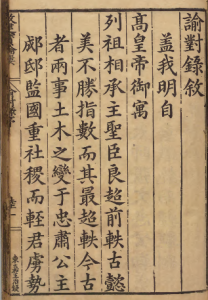 諭對錄敘
蓋我明自
髙皇帝御寓
列祖相承主聖臣良超前軼古懿
美不勝指數而其最超軼今古
者兩事土木之變于忠肅公主
郕邸監國重社稷而輕君虜勢